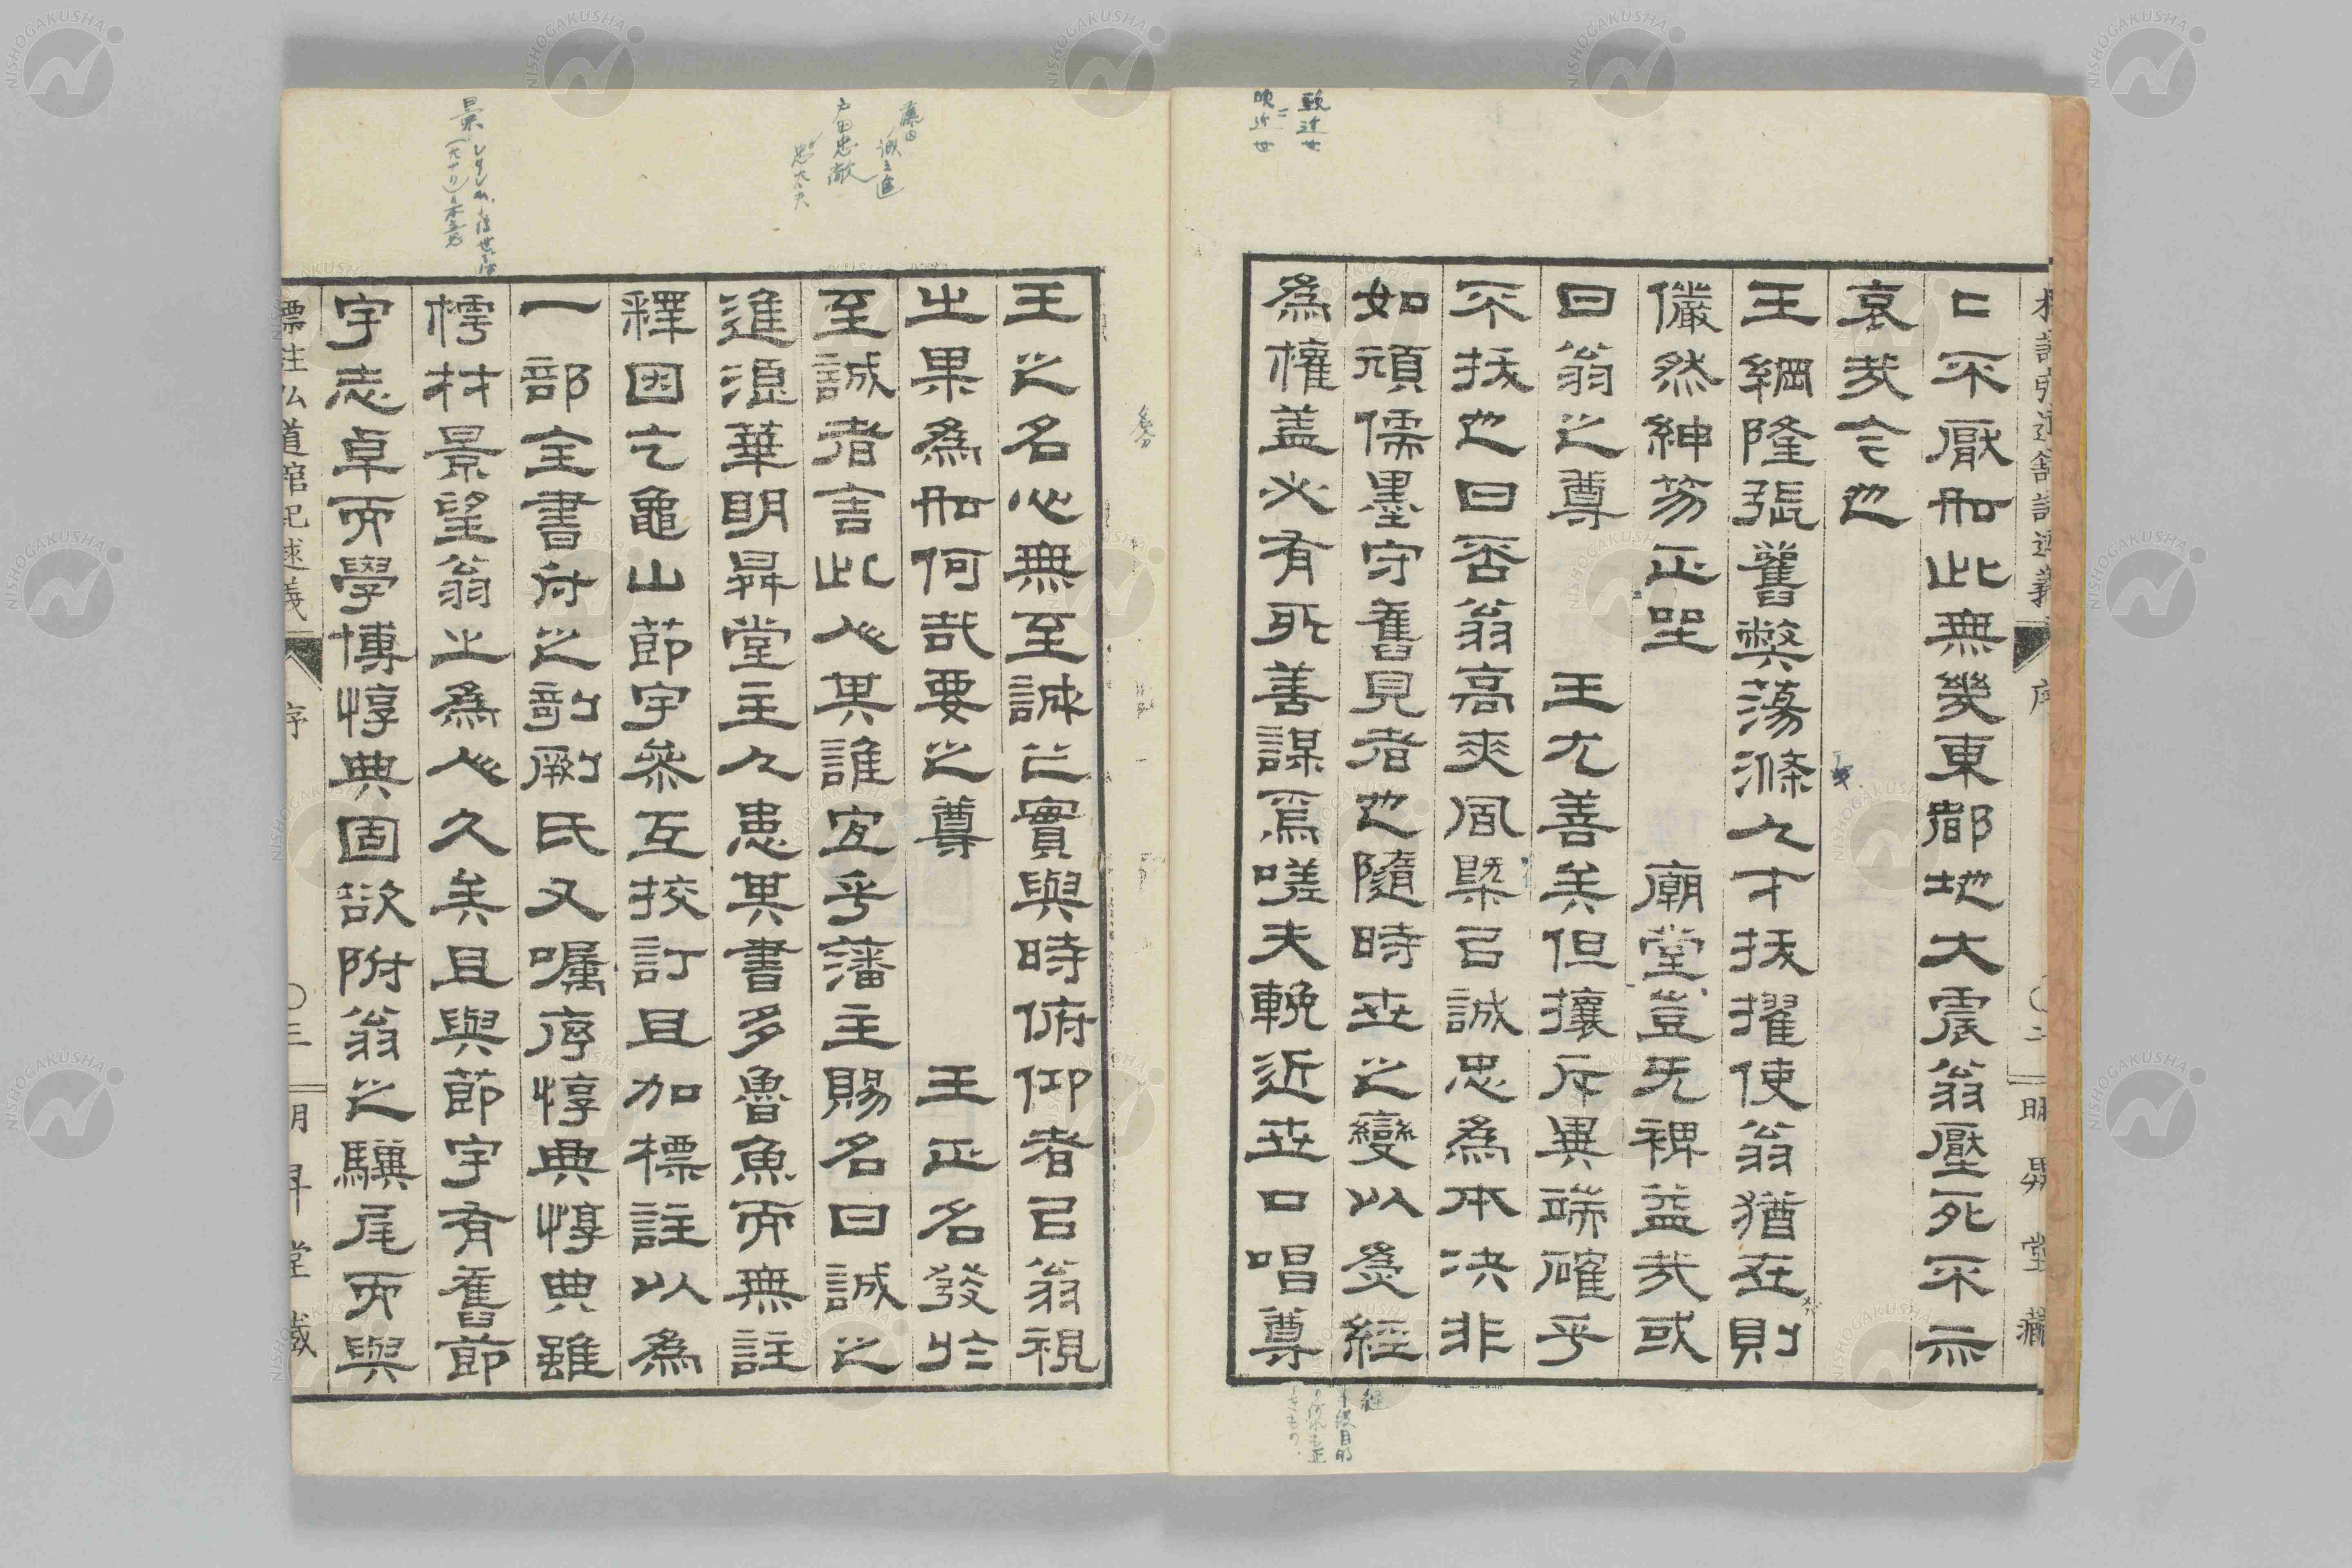 仁不厭如此無幾東都地大震翁壓死不亦
哀哉今也
王綱隆張舊弊蕩滌人才拔擢使翁猶在則
儼然紳笏正坐　廟堂豈无裨益哉或
曰翁之尊　王尤善矣但攘斥異端確乎
不拔也曰否翁高爽風槩以誠忠爲本決非
如頑儒墨守舊見者也隨時世之變以爲經
爲權蓋必有所善謀焉嗟夫輓近世口唱尊
王之名心無至誠之實與時俯仰者以翁視
之果爲如何哉要之尊　王正名發於
至誠者言此人其誰宜乎藩主賜名曰誠之
進源華明昇堂主人患其書多魯魚而無註
釋因乞龜山節宇參互挍訂且加標註以爲
一部全書付之剞劂氏又囑序惇典惇典雖
樗材景望翁之爲人久矣且與節宇有舊節
宇志卓而學博惇典固欲附翁之驥尾而與
標註弘道館記述義　序　〇三　明昇堂藏
藤田
誠之進
戸田忠敞
忠太夫
景
輓近世
晩近世